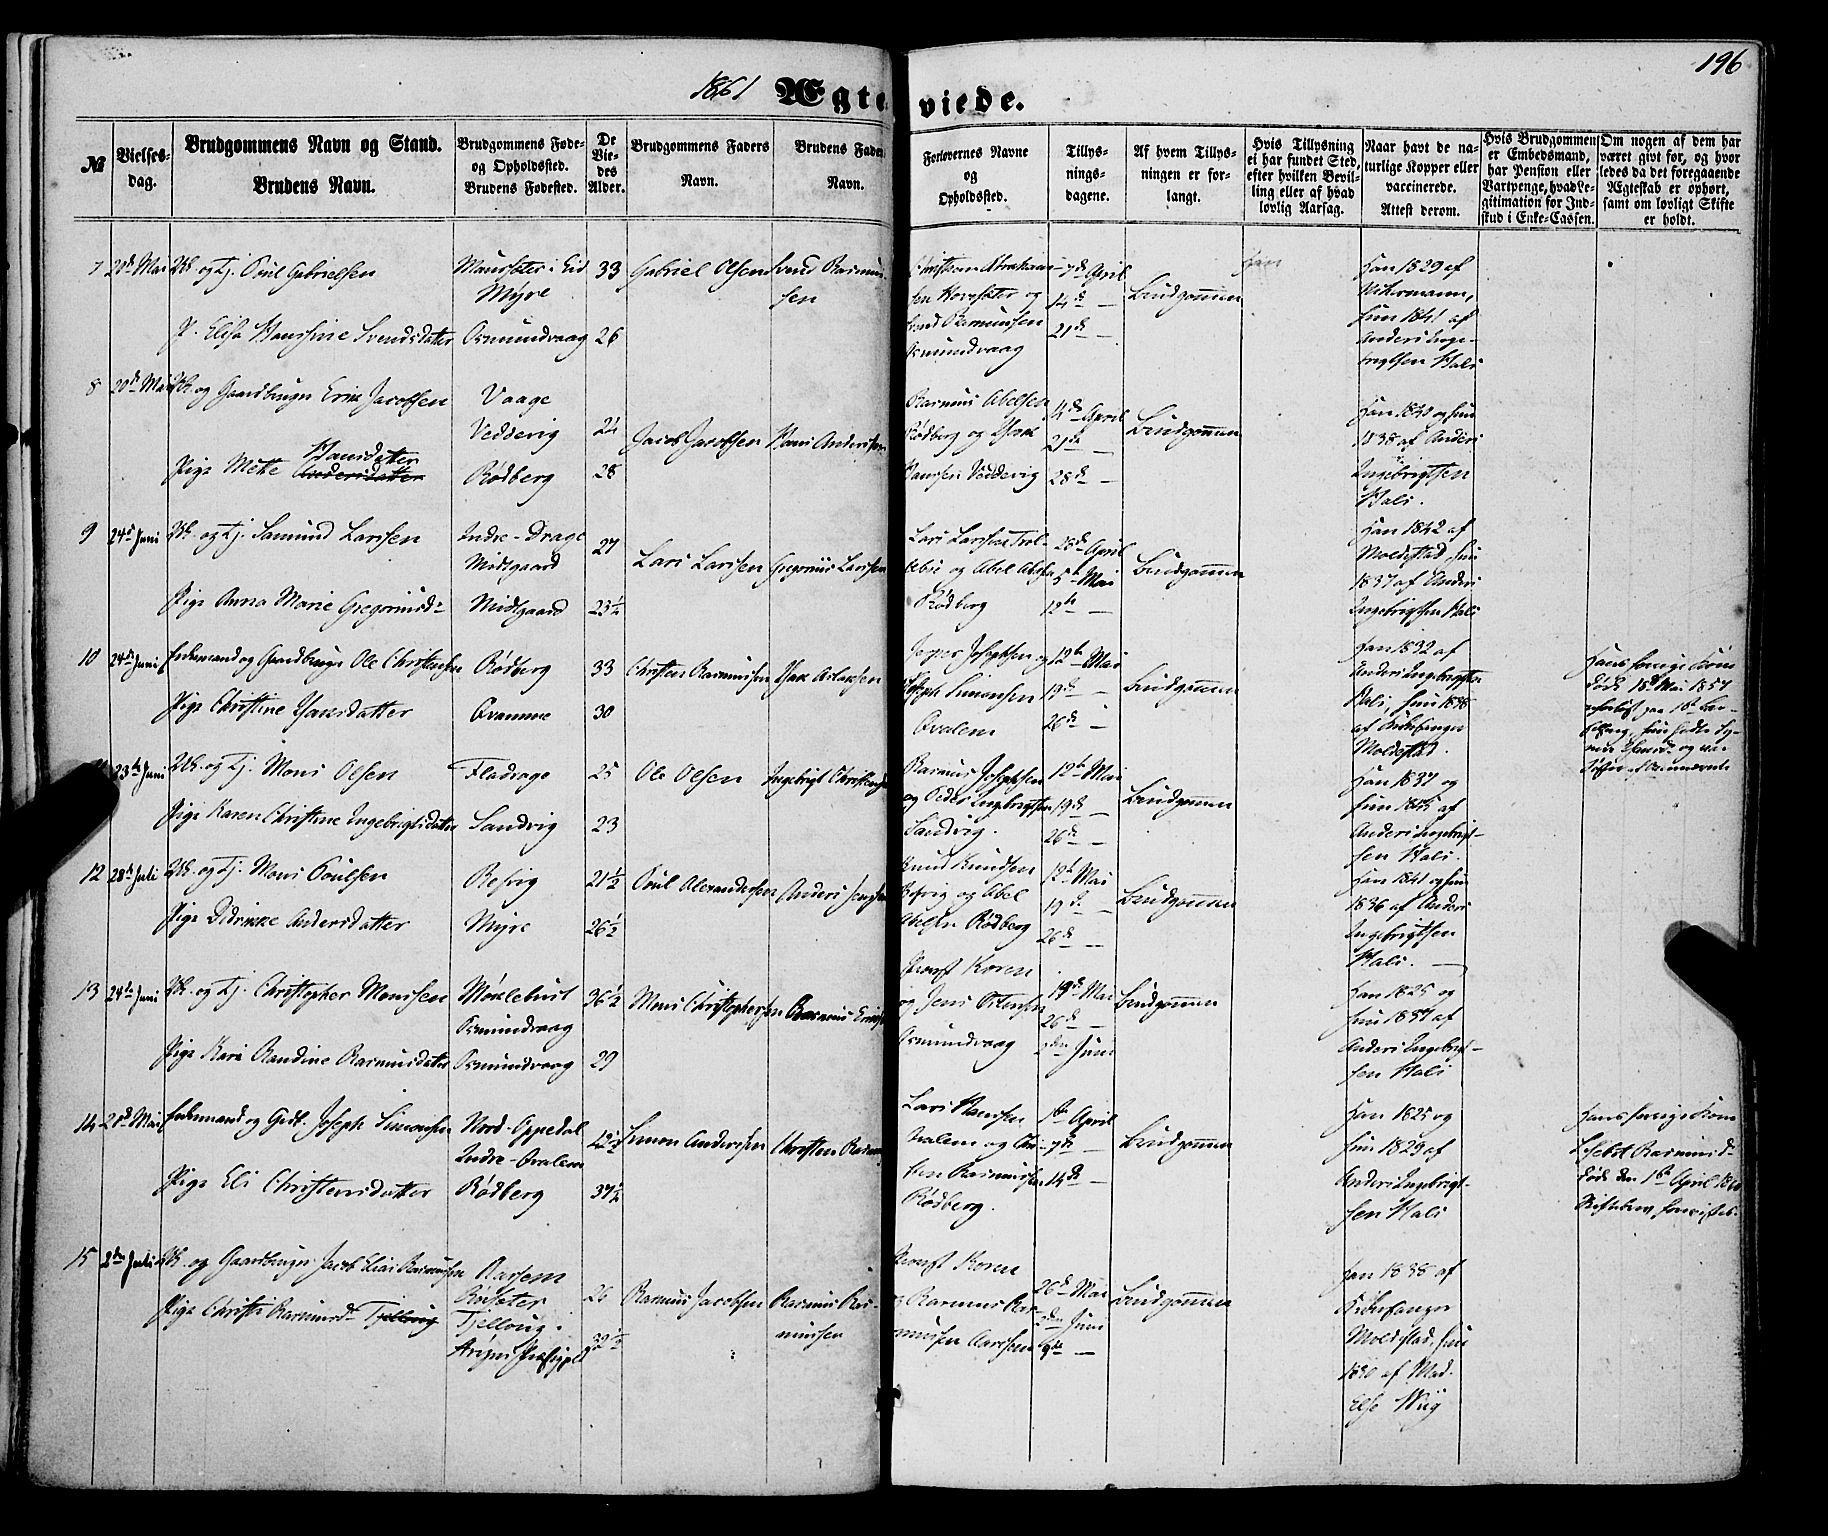 196
1861 Ægteviede.
№
Vielses-
dag.
Brudgommens Navn og Stand.
Brudens Navn.
Brudgommens Føde-
og Opholdssted.
Brudens Fødested.
De
Vie-
des
Alder.
Brudgommens Faders
Navn.
Brudens Faders
Navn.
Forlovernes Navne
og
Opholdssted.
Tillys-
nings-
dagene.
Af hvem Tillys-
ningen er for-
langt.
Hvis Tillysning
ei har fundet Sted,
efter hvilken Bevil-
ling eller af hvad
lovlig Aarsag.
Naar havt de na-
turlige Kopper eller
vaccinerede.
Attest derom.
Hvis Brudgommen
er Embedsmand,
har Pension eller
Vartpenge, hvad Le-
gitimation for Ind-
skud i Enke-Cassen.
Om nogen af dem har
været givt før, og hvor
ledes da det foregaaende
Ægteskab er ophørt,
samt om lovligt Skifte
er holdt.
7 20de Mai Uk. og Tj. Poul Gabrielsen
P. Elisa Hansine Svendsdatter
Maursæter i Eid
Myre
Osmundvaag
33
26
Gabriel Olsen
Svend Rasmus-
sen
Osmundvaag
7de April
14de —
21de —
Brudgommen
Han 1829 af
Hun 1841 af
Anders Inge-
brigtsen Hals
8 20de Mai Uk. og Gaardbruger Erik Jacobsen
Hansdatter
Pige Mette Andersdatter
Vaage
Vedderig
Rødberg
24
28
Jacob Jacobsen
Hans Andersen
Rasmus Abelsen
Rødberg og
Hansen Vedderig
14de April
21de —
28de —
Brudgommen
Han 1840 og hun
1838 af Anders
Ingebrigtsen
Hals.
9 24de Juni Uk. og Tj. Samund Larsen
Pige Anna Marie Gregoriusd:
Indre-Drage
Midtgaard
Midtgaard
27
23½
Lars Larsen
Gregorius Larsen
Lars Larsen
og Abel
Rødberg
28de April
5te Mai
12te —
Brudgommen
Han 1842 af
Moldestad, hun
1837 af Anders
Ingebrigtsen Hals
10 24de Juni Enkemand og Gaardbruger Ole Christensen
Pige Christine Isaksdatter
Rødberg
Qvamme
33
30
Christen Rasmussen
Isak Aslaksen
Jesper Josephsen og
Joseph Simonsen
Qvalem
12te Mai
19de —
26de —
Brudgommen
Han 1832 af
Anders Ingebrigtsen
Hals, hun 1838
af Kirkesanger
Moldestad.
Hans forrige Kone
døde 18de Mai 1857
23de Juni Uk. og Tj. Mons Olsen
Pige Karen Christine Ingebrigtsdatter
Fladrage
Sandvig
25
23
Ole Olsen
Ingebrigt Christensen
Rasmus Josephsen
og Peder Ingebrigtsen
Sandvig.
12te Mai
19de —
26de —
Brudgommen
Han 1837 og
hun 1845 af
Anders Ingebrigt-
sen Hals.
12 28de Juli Uk. og Tj. Mons Poulsen
Pige Didrikke Andersdatter
Refvig
Myre
21½
26½
Poul Alexandersen
Anders
Knud Knudsen
Refvig og Abel
Abelsen Rødberg
12te Mai
19de —
26de —
Brudgommen
Han 1841 og hun
1836 af Anders
Ingebrigtsen
Hals. —
13 24de Juni Uk. og Tj. Christopher Monssen
Pige Kari Randine Rasmusdatter
Møklebust
Osmundvaag
Osmundvaag
36½
29
Mons Christophersen
Rasmus
Provst Koren
og Jens
Osmundvaag
19de Mai
26de —
2den Juni
Brudgommen
Han 1825 og
hun 1837 af
Anders Ingebrigt-
sen Hals
14 20de Mai Enkemand og Grdb. Joseph Simonsen
Pige Eli Christensdatter
Nord-Oppedal
Indre-Qvalem
Rødberg
42½
37½
Simon Anderssen
Christen
Lars Hansen
Qvalem og Chri-
sten Rasmussen
Rødberg.
1ste April
7de —
14de —
Brudgommen
Han 1825 og
hun 1829 af
Anders Ingebrigt-
sen Hals
Hans forrige Kone
Lisebet Rasmusd.
døde den 1ste April 1860
15 2den Juli Uk. og Gaardbruger Jacob Elias Rasmussen
Pige Christi Rasmusd. Tjelloug
Aarsem
Rofsæter
Tjelloug.
26
32½
Rasmus Jacobsen
Rasmus Ras-
mussen
Provst Koren
og Rasmus Ras-
mussen Aarsem
26de Mai
2den Juni
9de —
Brudgommen
Han 1838 af
Kirkesanger
Moldestad, hun
1830 af Mad.
Else Wiig